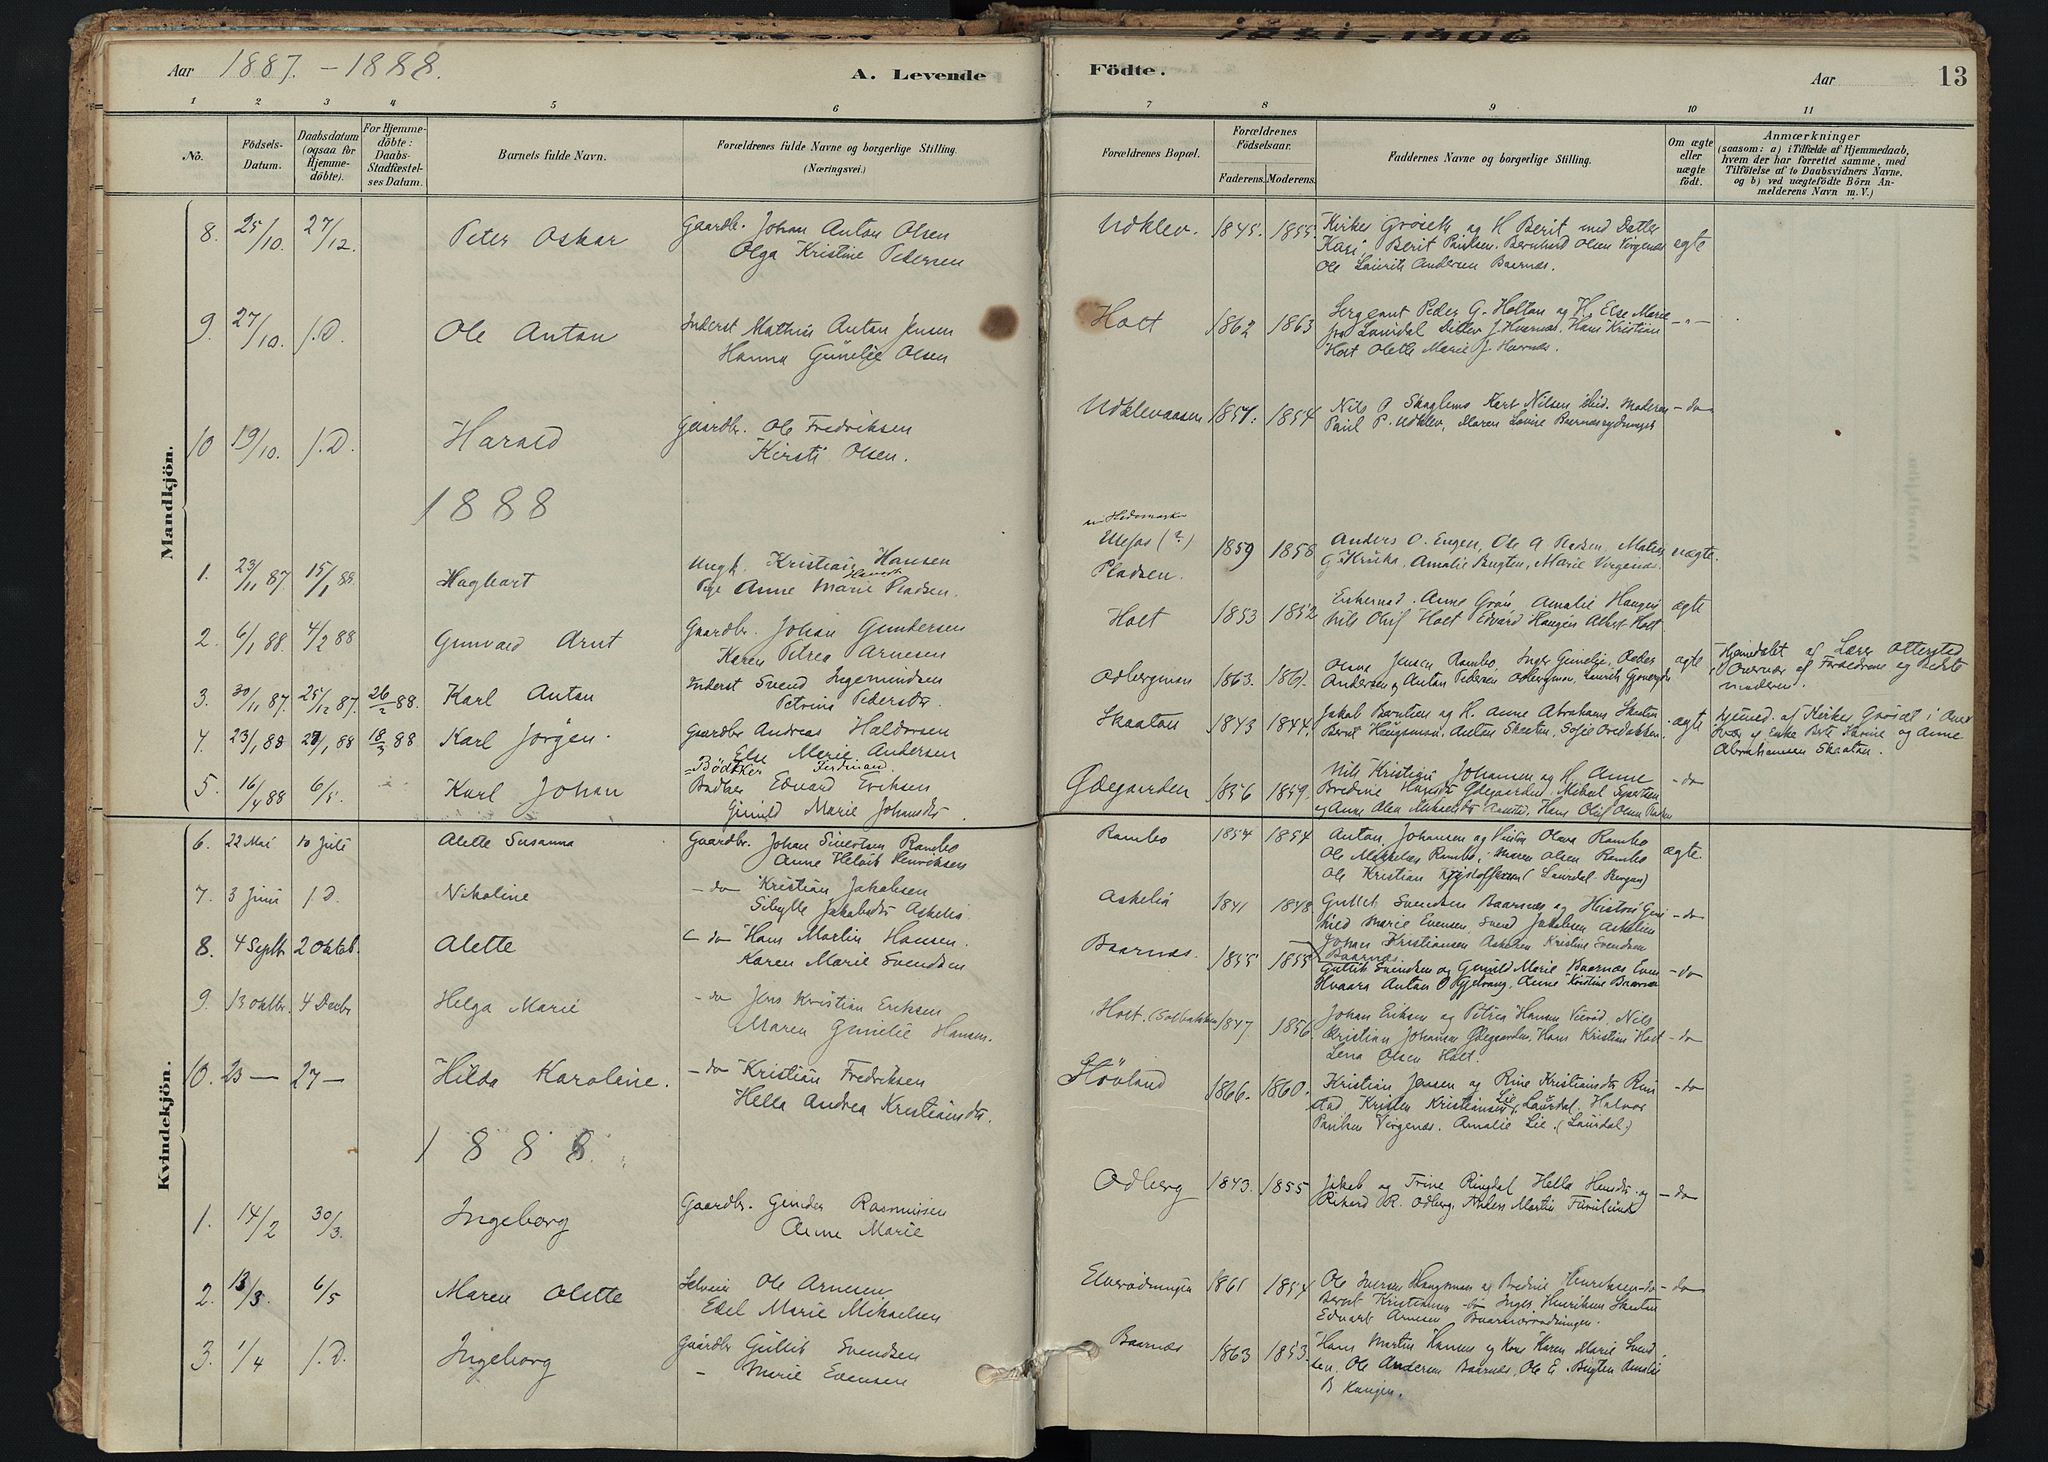 1881-1906
Aar 1887. - 1888.
A. Levende
Födte.
Aar
13
1 2 3 4 5 6 7 8 9 10 11
No.
Födsels-Datum.
Daabsdatum (ogsaa for Hjemme-döbte).
For Hjemme-döbte: Daabs-Stadfæstel-ses Datum.
Barnets fulde Navn.
Forældrenes fulde Navne og borgerlige Stilling. (Næringsvei.)
Forældrenes Bopæl.
Forældrenes Födselsaar.
Faderens. Moderens.
Faddernes Navne og borgerlige Stilling.
Om ægte eller uægte födt.
Anmærkninger
(saasom: a) i Tilfælde af Hjemmedaab,
hvem der har forrettet samme, med
Tilföielse af to Daabsvidners Navne,
og b) ved uægtefödte Börn An-
melderens Navn m. V.)
Mandkjön.
8. 25/10. 27/12. Peter Oskar
Gaardbr. Johan Anton Olsen
Olga Kristine Pedersen
Udklev. 1845. 1855.
Kirkes. Grøseth og H Berit med Datter
Kari, Berit Paulsen. Bernhard Olsen Virgenæs
Ole Laurits Andersen Baarnæs.
ægte
9. 27/10. s.D. Ole Anton
Inderst Mathis Anton Jensen
Hanna Gunelie Olsen
Holt 1862 1863
Sergeant Peder G. Holtan og H. Else Marie
fra Laurdal Ditlev J. Huarnæs, Hans Kristian
Holt Olette Marie J. Huarnæs.
-"-
10 19/10. s.D. Harald
Gaardbr. Ole Fredriksen
Kirsti Olsen.
Udklevaasen 1857. 1854
Nils P Skaglems Karl Nilsen ibid. Moderen
Paul P. Udklev, Maren Lovise Baarnæsrydningen
- do
1888
1. 23/11 87. 15/1 88. Hagbart
Ungk. Kristian Hansen
Pige Anne Marie Hansdtr Pladsen.
i Hedemarken
(?)
Pladsen. 1859 1858
Anders O. Engen, Ole A Pladsen, Mates
G. Kruka, Amalie Bugten, Marie Virgenæs.
uægte.
2. 6/1 88. 4/2 88 Gunvald Arnt
Gaardbr. Johan Gundersen
Karen Petrea Arnesen
Holt 1853 1852
Enkemad. Anne Grøn, Amalie Haugen
Nils Oluf Holt Edvard Haugen Albert Holt
ægte
3. 30/11 87. 25/12 87. 26/2 88. Karl Anton
Inderst Svend Ingemundsen
Petrine Pedersdtr
Odbergmon 1863. 1861.
Olava Jensen Rambo, Inger Gunelie, Peder
Andersen og Anton Pedersen Odbergmon, Laurits
ægte
Hjemdøbt af Lærer Ottersted
i Overvær af Forældrene og Bedste
moderen.
4. 23/1 88 28/1 88 18/3 88 Karl Jørgen.
Gaardbr Andreas Haldorsen
Else Marie Andersen
Skaatan 1843 1844.
Jakob Berntsen og H. Anne Abrahams Skaatan
Bernt Haugsmoen, Anton Skaatan, Sofie Ovedokken.
ægte
hjemmed. af Kirkes Grøset i Over
vær af Enke Berte Karine og Anne
Abrahamsen Skaatan.
5. 16/4 88 6/5. Karl Johan
= Bødtker Ferdinand.
Badbr Edvard Eriksen
Gunild Marie Johansdtr.
Ødegaarden 1856 1859.
Nils Kristian Johansen og H. Anne
Bredine Hansdtr Ødegaarden. Mikael Syvertsen
og Anne Olea Mikaelsdtr Aarstad, Hans Oluf Olsen
- do
Kvindekjön.
6. 22 Mai 10 Juli Alette Susanna
Gaardbr. Johan Sivertsen Rambo
Anne Helvik Henriksen
Rambo 1854 1854
Anton Johansen og Viebe Olava Rambo
Ole Mikkelsen Rambo, Maren Olsen Rambo
Ole Kristian Kristoffersen (Laurdal - Bergan)
ægte.
7. 3 Juni s.D Nikoline
- do Kristian Jakobsen
Sibylle Jakobsdtr Askelia.
Askelia 1841 1848.
Gullik Svendsen Baarnæs og Hustru Gu-
nild Marie Evensen, Svend Jakobsen Askelien
Johan Kristiansen Askelien Kristine Svendsen
Baarnæs.
- do
8. 4 Septb. 2 Oktob. Alette
- do Hans Martin Hansen.
Karen Marie Svendsen
Baarnæs. 1855 1855
Gullik Svendsen og Gunild Marie Baarnæs Even
Hvaara Anton O Kjelvang, Anne Kristine Baarnæs
- do
9. 13 Oktbr. 4 Decbr Helga Marie
- do Jens Kristian Eriksen
Maren Gunelie Hansen.
Holt. (Solbakken) 1847. 1856.
Johan Eriksen og Petrea Hansen Veirød, Nils
Kristian Johansen Ødegaarden, Hans Kristian Holt
Lena Olsen Holt.
- do
10. 23 — 27 — Hilda Karoline.
- do Kristian Fredriksen
Hella Andrea Kristiansdtr.
Hövland 1866. 1860.
Kristian Jensen og Rine Kristiansdtr Rin
stad Kristen Kristiansen Lie, Laurdal, Halvor
Paulsen Virgenæs. Amalie Lie. (Laurdal)
- do
1888.
1. 14/2 30/3. Ingeborg
Gaardbr. Gunder Rasmussen
Anne Marie
Odberg 1843. 1855
Jakob og Trine Ringdal Hella Hansdtr. og
Rikard R. Odberg, Anders Martin Furulund
- do
2. 13/3. 6/5 Maren Olette
Selveier Ole Arnesen
Edel Marie Mikaelsen
Elverødningen 1861 1854
Ole Iversen Haugsmoen og Bredine Henriksen - do
Bernt Kristiansen - do Inger Henriksen Skaatan
Edvart Arnesen Baarnæsrødningen.
- do
3. 1/4 s.D. Ingeborg
Gaardbr Gullik Svendsen
- Marie Evensen
Baarnæs 1863 1853.
Hans Martin Hansen og Kone Karen Marie Svend
sen, Ole Andersen Baarnæs, Ole E. Bugten Amalie
B Haugen.